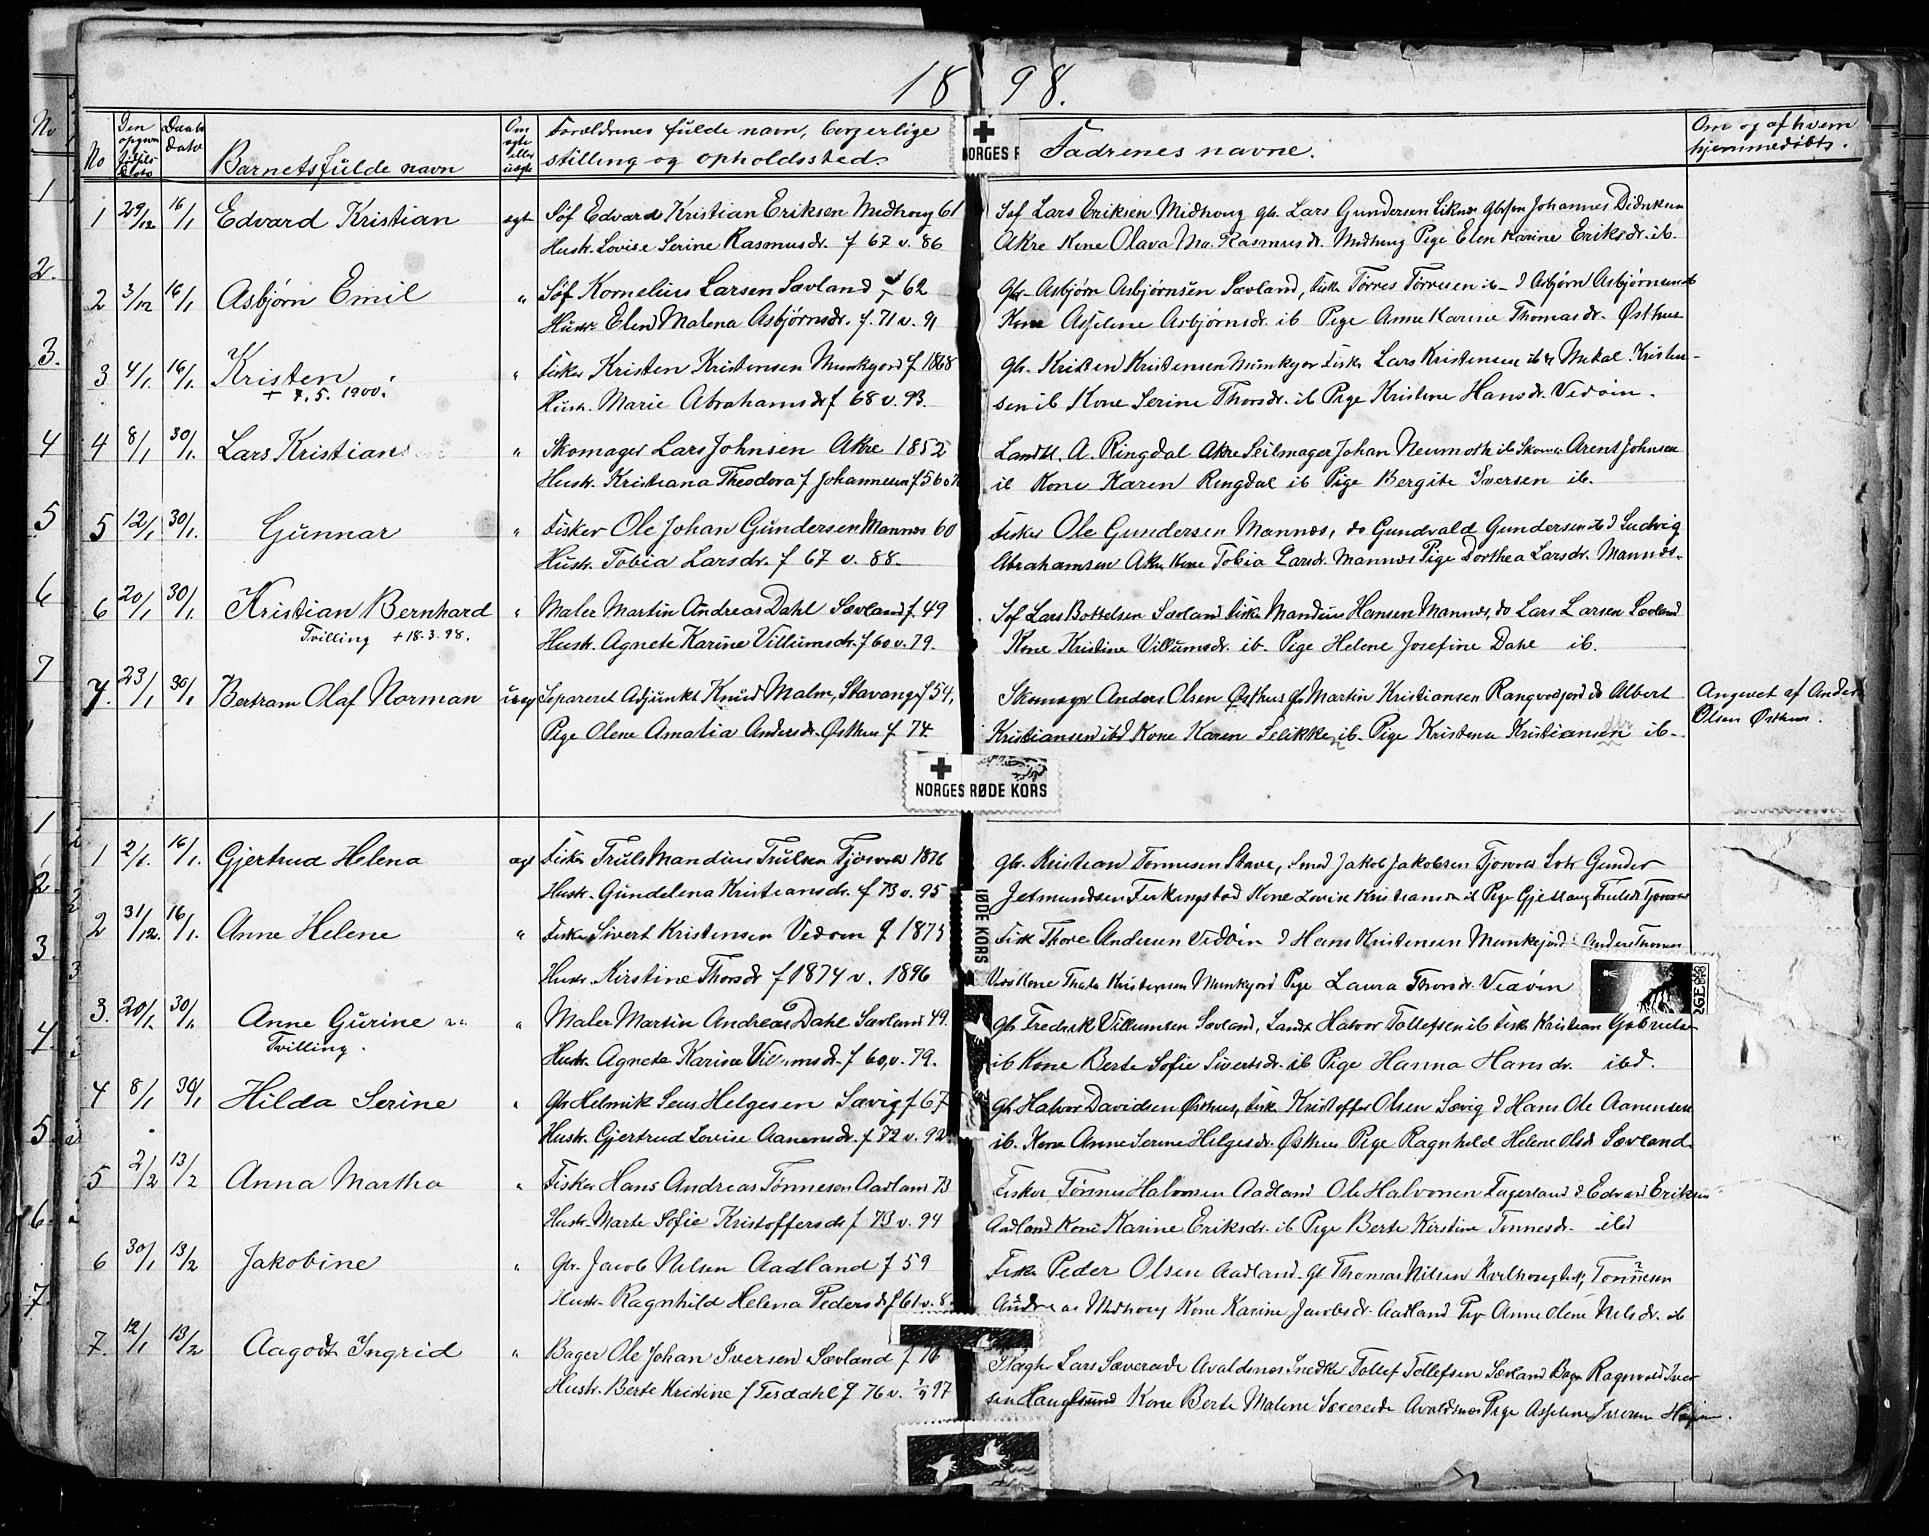 18 98.
No
Den opgivne fødselsdato
Daabs dato
Barnets fulde navn
Om ægte eller uægte
Forældrenes fulde navn, borgerlige
stilling og opholdssted.
Fadrenes navne.
Om og af hvem
hjemmedøbts.
NORGES R
1 29/12 16/1 Edvard Kristian ægt Søf Edvard Kristian Eriksen Medhoug 61 Søf Lars Eriksen Medhoug gb. Lars Gundersen Liknes Johannes Didriksen
Hustr. Lovise Serine Rasmusdr. f 67 v. 86 Akre Kone Olava Ma. Rasmusdr. Medhoug Pige Elen Karine Eriksdr. ib.
2 3/12 16/1 Asbjørn Emil " Søf Kornelius Larsen Sævland f 62 Gbr Asbjørn Asbjørnsen Sævland, Fisk Tørres ib Asbjørn Asbjørnsen ib
Hustr Elen Malena Asbjørnsdr. f. 71 v. 91 Kone Asselene Asbjørnsdr. ib Pige Anne Karine Thomasdr. Østhus
3 4/1 16/1 Kristen " Fisker Kristen Kristensen Munkejord f 1868 gb. Kristen Kristensen Munkejor Fisk Lars Kristensen ib Mikal Kristen-
+ 7.5. 1900.
Hustr. Marie Abrahamsdr f 68 v. 93. sen ib Kone Serine Thorsdr. ib Pige Kristine Hansdr. Vedøin.
4 8/1 30/1 Lars Kristian " Skomager Lars Johnsen Akre 1852 Landh. A. Ringdal Akre Seilmager Johan Neumoth ib Skom Arent Johnsen
Hustr. Kristiana Theodora f Johannesen f 56 ib Kone Karen Ringdal ib Pige Bergite Iversen ib.
5 12/1 30/1. Gunnar " Fisker Ole Johan Gundersen Mannes 60 Fisker Ole Gundersen Mannes, do Gundvald Gundersen ib Ludvig
Hustr. Tobia Larsdr. f 67 v. 88. Abrahamsen Akre Kone Tobia Larsdr. Mannes Pige Dorthea Larsdr. Mannes.
6 20/1 30/1 Kristian Bernhard " Maler Martin Andreas Dahl Sævland f. 49 Søf Lars Bottelsen Sævland Fisk Mandius Hansen Mannes, do Lars Larsen Sævland
Tvilling + 18.3.98.
Hustr. Agnete Karine Villumsdr. f 60 v. 79. Kone Kristine Villumsdr. ib. Pige Helene Josefine Dahl ib.
7. 23/1 30/1 Bertram Olaf Norman uæg Separeret Adjunkt Knud Malm, Stavanger f 54, Skomager Anders Olsen Østhus Martin Kristiansen Rangvodjord do Albert Angivet af Anders
Pige Olene Amalia Andersdr. Østhus f 74. Kristiansen ibd Kone Karen Selikke ib. Pige Kristina Kristiansen ib. Olsen Østhus.
NORGES RØDE KORS
1 2/1. 16/1. Gjertrud Helena ægt Fisker Truls Mandius Trulsen Tjøsvold 1876 gb. Kristian Tonnesen Stave, Smed Jakob Jakobsen Tjosvold Gunder
Hustr. Gundelena Kristiansdr. f 73 v. 95 Jetmundsen Ferkingstad Kone Lovise Kristiansdr ib Pige Trulsdr Tjosvold
2 31/12. 16/1. Anne Helene " Fisker Sivert Kristensen Vedøen f 1873 Fisk Thore Andersen Vedøin Hans Kristensen Munkejord Anders Thorsen
Hustr. Kirstine Thorsdr f 1874 v. 1896 Kone Kristensen Munkejord Pige Laura Thorsdr. Vedøin
RØDE KORS
3. 20/1 30/1 Anne Gurine " Maler Martin Andreas Dahl Sævland 49. gb Fredrik Villumsen Sævland, Landh Halvor Tollefsen ib Fisk Kristian Gabriels
Tvilling.
Hustr. Agnete Karine Villumsdr. f 60, v. 79. ib Kone Berte Sofie Sivertsdr. ib Pige Hanna Hansdr. ibd.
4 8/1 30/1 Hilda Serine " Gbr Helmik Sens Helgesen Sævig f 67 gb Halvor Davidsen Østhus, Fisk Kristoffer Olsen Sævig Hans Ole Aanensen
Hustr. Gjertrud Lovise Aanensdr. f 72 v. 92 ib. Kone Anne Serine Helgesdr. Østhus Pige Ragnhild Helene Olsdr Sævland
5 2/2 13/2 Anna Martha " Fisker Hans Andreas Tønnesen Aadland 73 Fisker Tønnes Halvorsen Aadland Ole Halvorsen Fagerland Edvard Eriksen
Hustr. Marte Sofie Kristoffersdr f 73 v. 94 Aadland Kone Karine Eriksdr. ib Pige Berte Kirstine Tønnesdr. ibd
6 30/1 13/2 Jakobine " Gbr. Jacob Nilsen Aadland f 59 Fisker Peder Olsen Aadland. Gb Thomas Nilsen Kvalhoug Fisk, Tonnesen
Hustr. Ragnhild Helena Pedersdr f 61 v. 8 Medhoug Kone Karine Jacobsdr. Aadland Pige Anne Olene Nilsdr. ib
7. 12/1 13/2 Aagodt Ingrid " Bager Ole Johan Iversen Sævland f 76 Lars Sævereide Avaldsnes Snedker Tollef Tollefsen Sævland Bager Ragnvald Iver
Hustr. Berte Kristine f Tesdahl f 76 v. 97 sen Haugesund Kone Berte Malene Sævereide Avaldsnes Pige Asseline Iversen